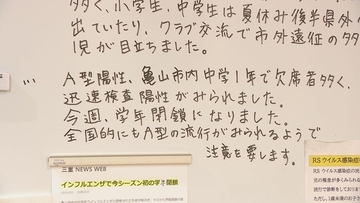 多く、小学生、中学生は夏休み後半県外へ
出ていたり、クラブ交流で市外遠征のタ
見が目立ちました。
A型陽性、亀山市内中学1年で欠席者多く、
迅速検査陽性がみられました。
今週、学年閉鎖になりました。
全国的にもA型の流行がみられるようで
注意を要します。
三重 NEWS WEB
インフルエンザで今シーズン初の学
閉鎖
RS ウイルス感染症の
RS ウイルス感染症の